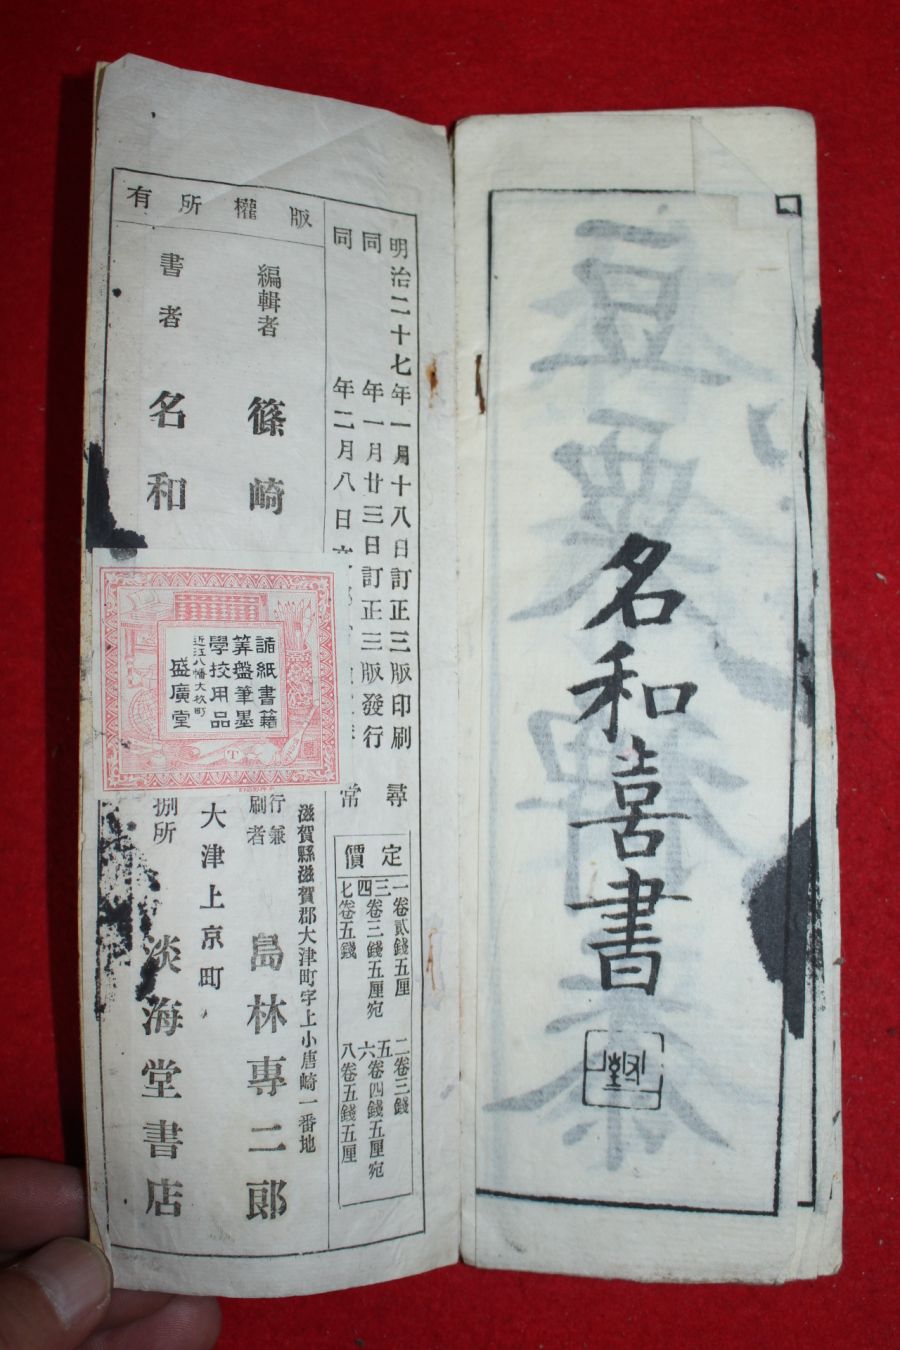 名和喜書
版權所有
明治二十七年一月十八日訂正三版印刷
同年一月廿三日訂正三版發行
同年二月八日
尋常
定價
一卷貳錢五厘
二卷三錢
三四卷三錢五厘宛
五六卷四錢五厘宛
七卷五錢
八卷五錢五厘
編輯者
篠崎
書者
名和
滋賀縣滋賀郡大津町字上小唐崎一番地
行兼
刷者
島林專二郎
大津上京町
捌所
淡海堂書店
諸紙書籍
筭盤筆墨
學校用品
近江八幡大杉町
盛廣堂